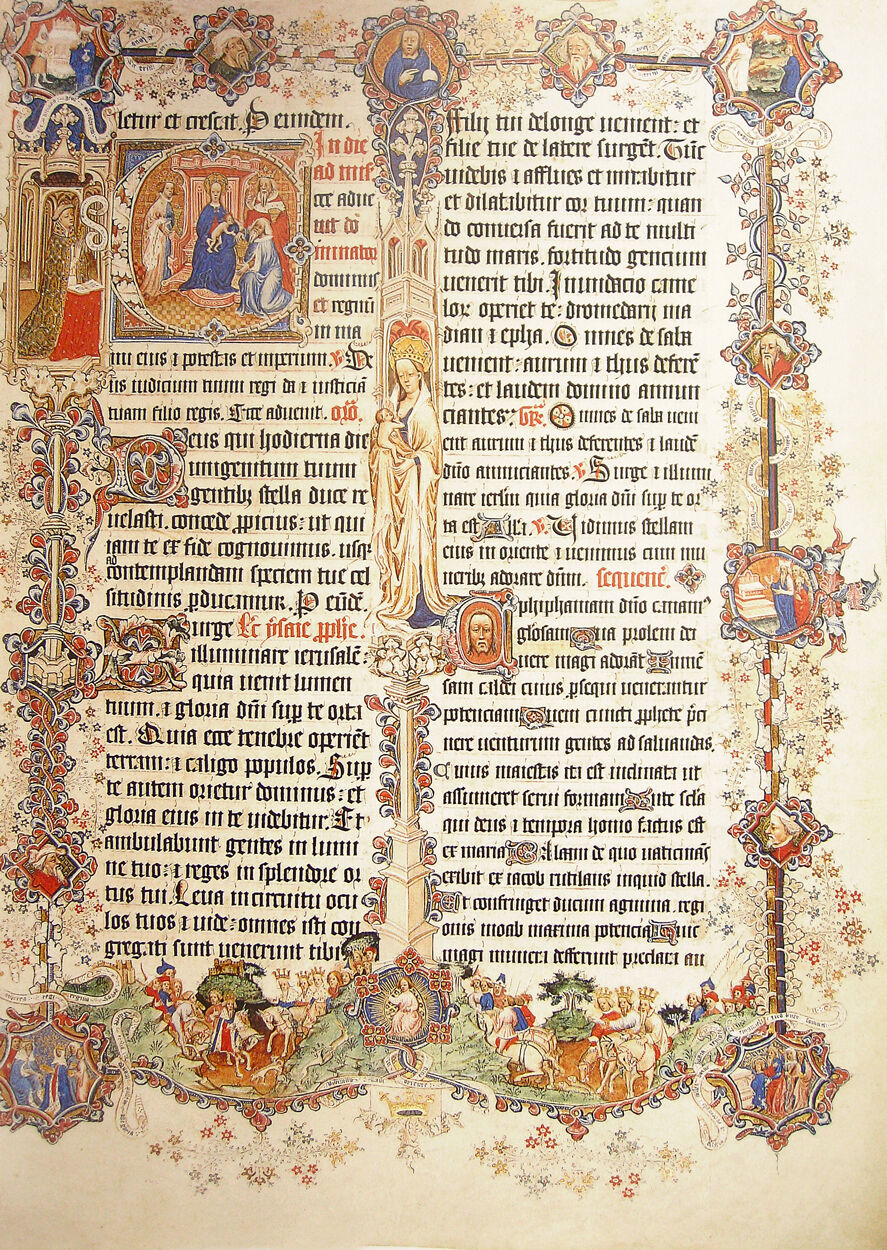 letur et crescit. P eundem.
In die
ad mis
cce adue
nit do
minator
dominus
et regnū
in ma
nu eius ⁊ potestas et imperium. V De
us iudicium tuum regi da ⁊ iusticiā
tuam filio regis. Ecce aduenit. orō.
Deus qui hodierna die
unigenitum tuum
gentibꝫ stella duce re
uelasti. concede ꝓpicius: ut qui
iam te ex fide cognouimus. usqꝫ
ad contemplandam speciem tue cel
situdinis ꝑducamur. P eūdē.
Surge Lc̄ ysaie ꝓphe.
illuminare ierusalē:
quia uenit lumen
tuum. ⁊ gloria dn̄i sup te orta
est. Quia ecce tenebre operiēt
terram: ⁊ caligo populos. Sup
te autem orietur dominus: et
gloria eius in te uidebitur. Et
ambulabunt gentes in lumi
ne tuo: ⁊ reges in splendore or
tus tui. Leua in circuitu ocu
los tuos ⁊ uide: omnes isti con
gregati sunt uenerunt tibi
ffilij tui delonge uenient: et
filie tue de latere surgēt. Tūc
uidebis ⁊ afflues et mirabitur
et dilatabitur cor tuum: quan
do conuersa fuerit ad te multi
tudo maris. fortitudo gencium
uenerit tibi. Inundacio came
lor operiet te: dromedarij ma
dian ⁊ epha. Omnes de saba
uenient: aurum ⁊ thus deferē
tes: et laudem domino annun
ciantes: Gr̄. Omnes de saba ueni
ent aurum ⁊ thus deferentes ⁊ laudē
dn̄o annunciantes. V Surge ⁊ illumi
nare ierl̄m quia gloria dn̄i sup te or
ta est Alla. V Vidimus stellam
eius in oriente ⁊ uenimus cum mu
neribꝫ adorare dn̄m. sequenc̄.
Epiphaniam dn̄o canam9
gloriosam Qua prolem dei
uere magi adorāt Inmē
sam caldei cuius ꝑseqꝫ uenerantur
potenciam Quem cuncti ꝓphete p̄ci
nere uenturum gentes ad saluandas.
Cuius maiestas ita est inclinata ut
assumeret serui formam Ante scla
qui deus ⁊ tempora homo factus est
ex maria Balaam de quo uaticinās
exibit ex iacob rutilans inquid stella.
Et confringet ducum agmina regi
onis moab maxima potencia Huic
magi munera defferunt preclara au